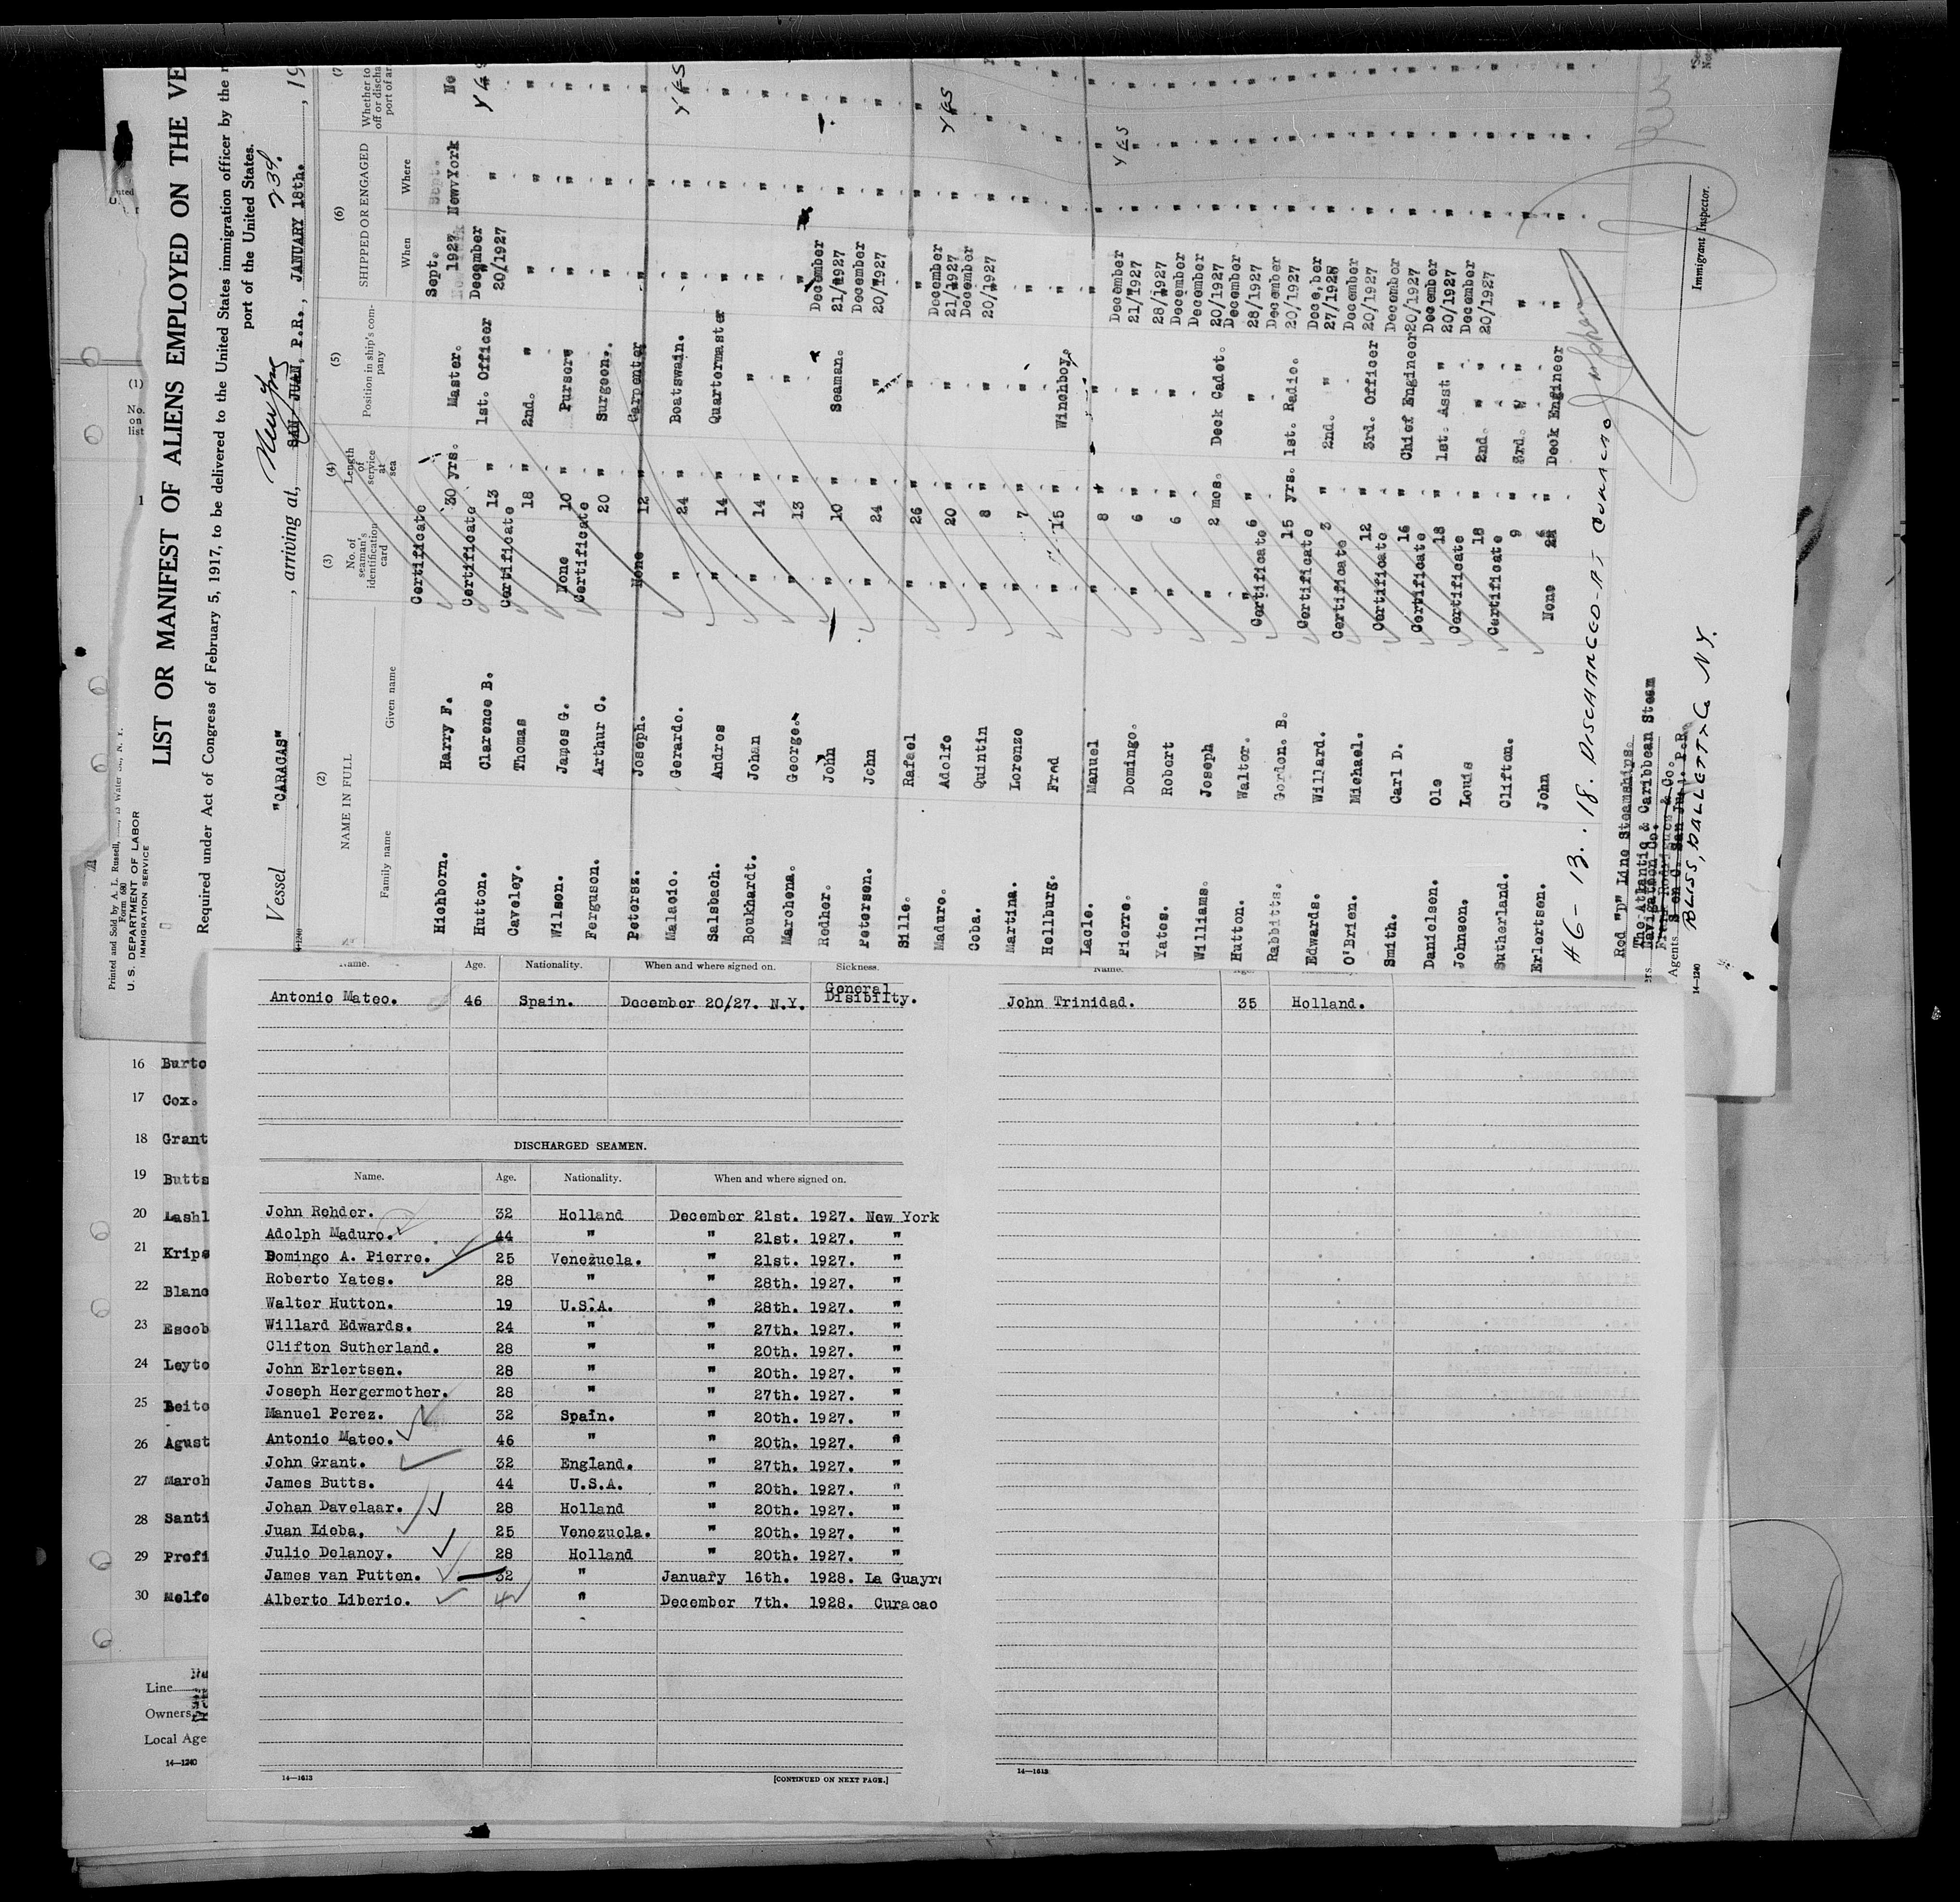 LIST OR MANIFEST OF ALIENS EMPLOYED ON THE VE
Required under Act of Congress of February 5, 1917, to be delivered to the United States immigration officer by the
port of the United States.
Vessel "CARACAS" , arriving at, SAN JUAN, P.R., JANUARY 18th. , 19
New York
Printed and Sold by A. L. Russell,
Form 680
U. S. DEPARTMENT OF LABOR
IMMIGRATION SERVICE
(1)
No. on list
1
(2)
NAME IN FULL
Family name Given name
(3)
No. of seaman's identification card
(4)
Length of service at sea
(5)
Position in ship's company
(6)
SHIPPED OR ENGAGED
When Where
Hichborn. Harry F. Certificate 30 yrs. Master. Sept. 1927 New York No
Hutton. Clarence B. Certificate 13 " 1st. Officer December 20/1927 " Yes
Caveley. Thomas Certificate 18 " 2nd. " " "
Wilson. James G. None 10 " Purser " "
Ferguson. Arthur C. Certificate 20 " Surgeon. " "
Petersz. Joseph. None 12 " Carpenter " "
Malacio. Gerardo. " 24 " Boatswain. " " YES
Salsbach. Andres " 14 " Quartermaster " "
Boukhardt. Johan " 14 " " " "
Marchena. George. " 13 " " " "
Redher. John " 10 " Seaman. December 21/1927 "
Petersen. John " 24 " " December 20/1927 "
Sille. Rafael " 26 " " " "
Maduro. Adolfo " 20 " " December 21/1927 " YES
Coba. Quintin " 8 " " December 20/1927 "
Martina. Lorenzo " 7 " " " "
Hellburg. Fred " 15 " Winchboy. " "
Lacle. Manuel " 8 " " " "
Pierre. Domingo. " 6 " " December 21/1927 " YES
Yates. Robert " 6 " " 28/1927 "
Williams. Joseph " 2 mos. Deck Cadet. December 20/1927 "
Hutton. Walter. " 6 " " December 28/1927 "
Rabbitts. Gordon. B. Certificate 15 yrs. 1st. Radio. December 20/1927 "
Edwards. Willard. Certificate 3 " 2nd. " Dece,ber 27/1928 "
O'Brien. Michael. Certificate 12 " 3rd. Officer December 20/1927 "
Smith. Carl D. Certificate 16 " Chief Engineer December 20/1927 "
Danielsen. Ole Certificate 18 " 1st. Asst " December 20/1927 "
Johnson. Louis Certificate 18 " 2nd. " " December 20/1927 "
Sutherland. Clifton. Certificate 9 " 3rd. " " " "
Erlertsen. John None " Deck Engineer " "
46-13. 18. DISCHARGED-AT CURACAO
Red "D" Line Steamships.
The Atlantic & Caribbean Steam
Navigation Co.
Agents
BLISS, DALLETT & Co NY.
Immigrant Inspector.
14—1240
Name. Age. Nationality. When and where signed on. Sickness.
Antonio Mateo. 46 Spain. December 20/27. N.Y. General Disibilty.
John Trinidad. 35 Holland.
DISCHARGED SEAMEN.
Name. Age. Nationality. When and where signed on.
John Rehder. 32 Holland December 21st. 1927. New York
Adolph Maduro. 44 " " 21st. 1927. "
Domingo A. Pierre. 25 Venezuela. " 21st. 1927. "
Roberto Yates. 28 " " 28th. 1927. "
Walter Hutton. 19 U.S.A. " 28th. 1927. "
Willard Edwards. 24 " " 27th. 1927. "
Clifton Sutherland. 28 " " 20th. 1927. "
John Erlertsen. 28 " " 20th. 1927. "
Joseph Hergermother. 28 " " 27th. 1927. "
Manuel Perez. 32 Spain. " 20th. 1927. "
Antonio Mateo. 46 " " 20th. 1927. "
John Grant. 32 England. " 27th. 1927. "
James Butts. 44 U.S.A. " 20th. 1927. "
Johan Davelaar. 28 Holland " 20th. 1927. "
Juan Lieba, 25 Venezuela. " 20th. 1927. "
Julio Delanoy. 28 Holland " 20th. 1927. "
James van Putten. 32 " January 16th. 1928. La Guayra
Alberto Liberio. " December 7th. 1928. Curacao
14—1613
[CONTINUED ON NEXT PAGE.]
14—1613
16 Burto
17 Cox.
18 Grant
19 Butts
20 Lashl
21 Kripe
22 Blanc
23 Escob
24 Leyto
25 Beito
26 Agust
27 March
28 Santi
29 Profi
30 Melfo
Line
Owners
Local Age
14—1240